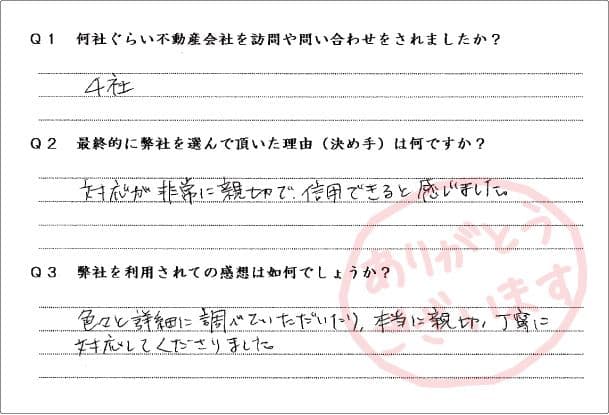 Q1 何社ぐらい不動産会社を訪問や問い合わせをされましたか？
4社
Q2 最終的に弊社を選んで頂いた理由（決め手）は何ですか？
対応が非常に親切で、信用できると感じました。
Q3 弊社を利用されての感想は如何でしょうか？
色々と詳細に調べていただいたり、本当に親切、丁寧に
対応してくださりました。
ありがとう
ございます